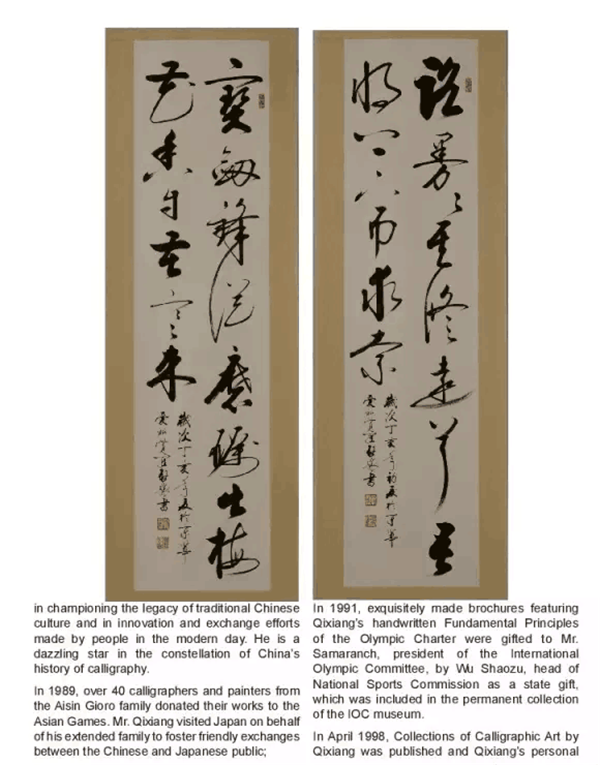 寶劍鋒從磨礪出梅
花香自苦寒來
歲次丁亥年夏於京華
路曼〻其修遠兮吾
將上下而求索
歲次丁亥年初夏於京華
in championing the legacy of traditional Chinese
culture and in innovation and exchange efforts
made by people in the modern day. He is a
dazzling star in the constellation of China's
history of calligraphy.
In 1989, over 40 calligraphers and painters from
the Aisin Gioro family donated their works to the
Asian Games. Mr. Qixiang visited Japan on behalf
of his extended family to foster friendly exchanges
between the Chinese and Japanese public;
In 1991, exquisitely made brochures featuring
Qixiang's handwritten Fundamental Principles
of the Olympic Charter were gifted to Mr.
Samaranch, president of the International
Olympic Committee, by Wu Shaozu, head of
National Sports Commission as a state gift,
which was included in the permanent collection
of the IOC museum.
In April 1998, Collections of Calligraphic Art by
Qixiang was published and Qixiang's personal